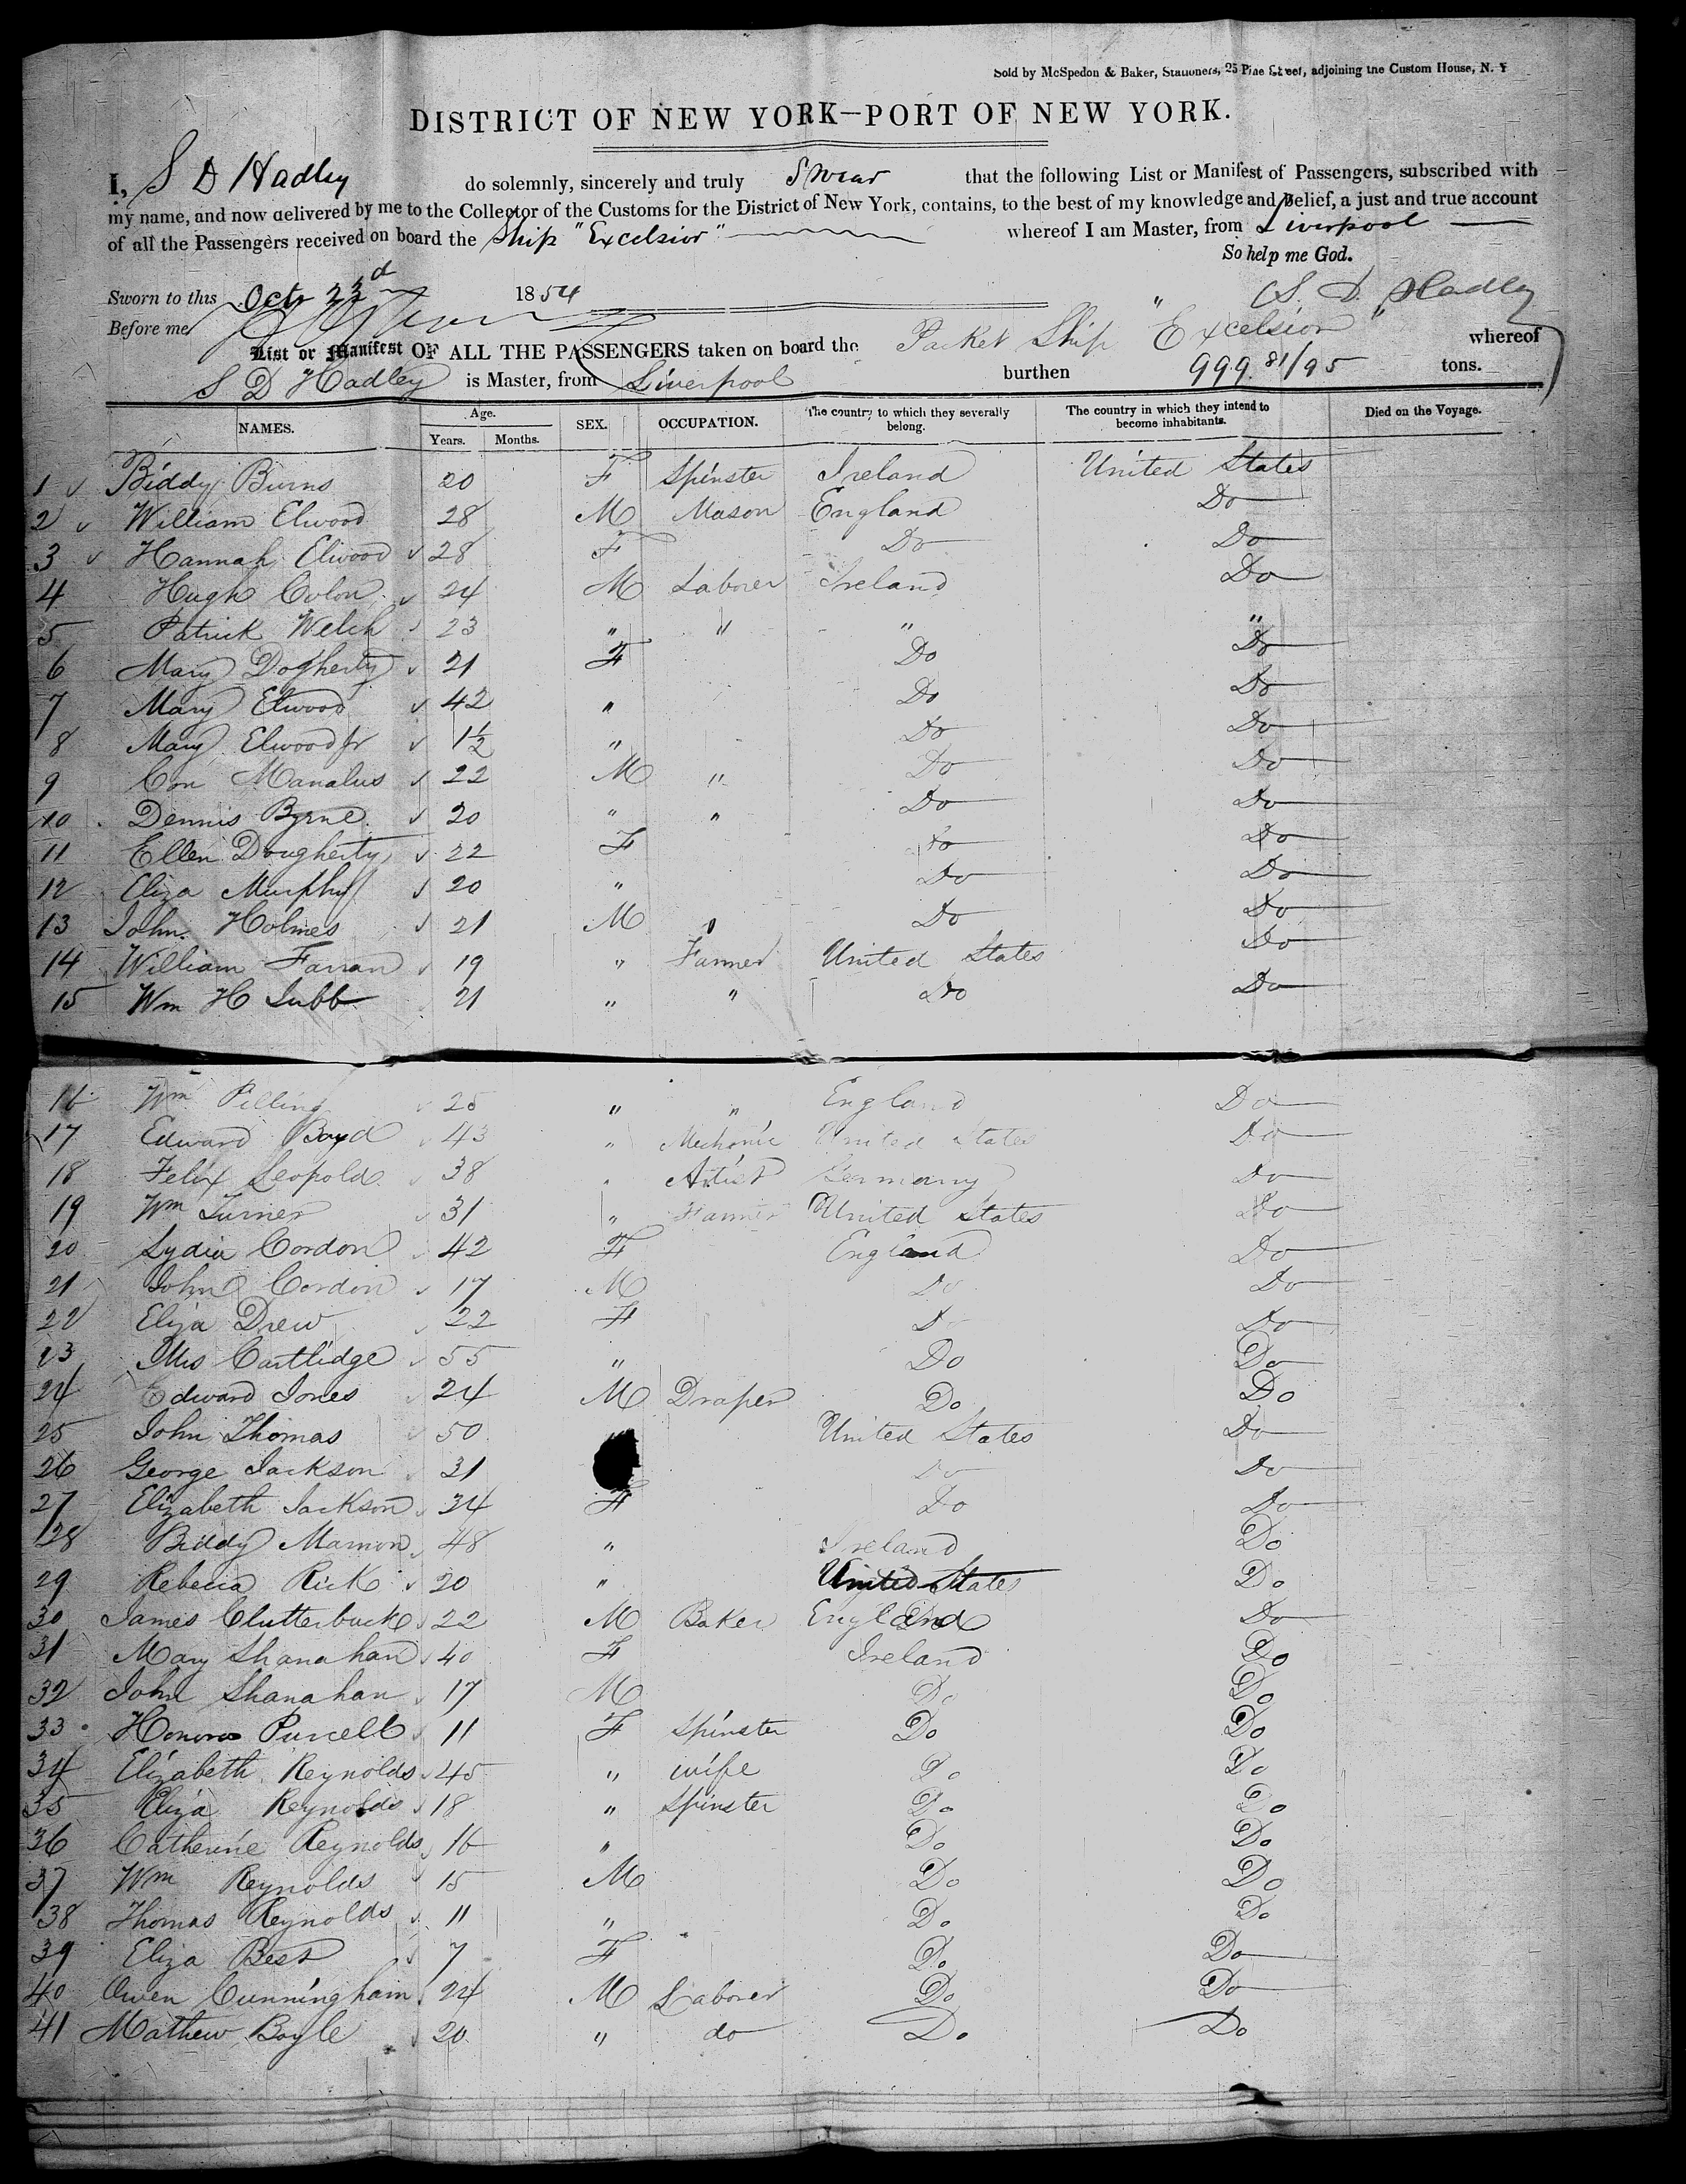 Sold by McSpedon & Baker, Stationers, 25 Pine Street, adjoining the Custom House, N. Y
DISTRICT OF NEW YORK—PORT OF NEW YORK.
I, S D Hadley do solemnly, sincerely and truly Swear that the following List or Manifest of Passengers, subscribed with
my name, and now delivered by me to the Collector of the Customs for the District of New York, contains, to the best of my knowledge and belief, a just and true account
of all the Passengers received on board the Ship "Excelsior" whereof I am Master, from Liverpool
So help me God.
Sworn to this Octr 23d 1854 S. D. Hadley
Before me
List or Manifest OF ALL THE PASSENGERS taken on board the Packet Ship "Excelsior" whereof
S D Hadley is Master, from Liverpool burthen 999 81/95 tons.
NAMES. Age. Years. Months. SEX. OCCUPATION. The country to which they severally belong. The country in which they intend to become inhabitants. Died on the Voyage.
1 Biddy Burns 20 F Spinster Ireland United States
2 William Elwood 28 M Mason England Do
3 Hannah Elwood 28 F Do Do
4 Hugh Colon 24 M Laborer Ireland Do
5 Patrick Welch 23 " " " "
6 Mary Dogherty 21 F Do Do
7 Mary Elwood 42 " Do Do
8 Mary Elwood Jr 1½ " Do Do
9 Con Manalus 22 M " Do Do
10 Dennis Byrne 20 " " Do Do
11 Ellen Dougherty 22 F Do Do
12 Eliza Murphy 20 " Do Do
13 John Holmes 21 M " Do Do
14 William Farran 19 " Farmer United States Do
15 Wm H Tubb 21 " " Do Do
16 Wm Pilling 25 " " England Do
17 Edward Boyd 43 " Mechanic United States Do
18 Felix Leopold 38 " Artist Germany Do
19 Wm Turner 31 " Farmer United States Do
20 Lydia Cordon 42 F England Do
21 John Cordon 17 M Do Do
22 Eliza Drew 22 F Do Do
23 Mrs Cartlidge 55 " Do Do
24 Edward Jones 24 M Draper Do Do
25 John Thomas 50 United States Do
26 George Jackson 31 Do Do
27 Elizabeth Jackson 34 F Do Do
28 Biddy Marrion 48 " Ireland Do
29 Rebecca Rick 20 " United States Do
30 James Clutterbuck 22 M Baker England Do
31 Mary Shanahan 40 F Ireland Do
32 John Shanahan 17 M Do Do
33 Honora Purcell 11 F Spinster Do Do
34 Elizabeth Reynolds 45 " wife Do Do
35 Eliza Reynolds 18 " Spinster Do Do
36 Catherine Reynolds 16 " Do Do
37 Wm Reynolds 15 M Do Do
38 Thomas Reynolds 11 " Do Do
39 Eliza Best 7 F Do Do
40 Owen Cunningham 24 M Laborer Do Do
41 Mathew Boyle 20 " do Do Do